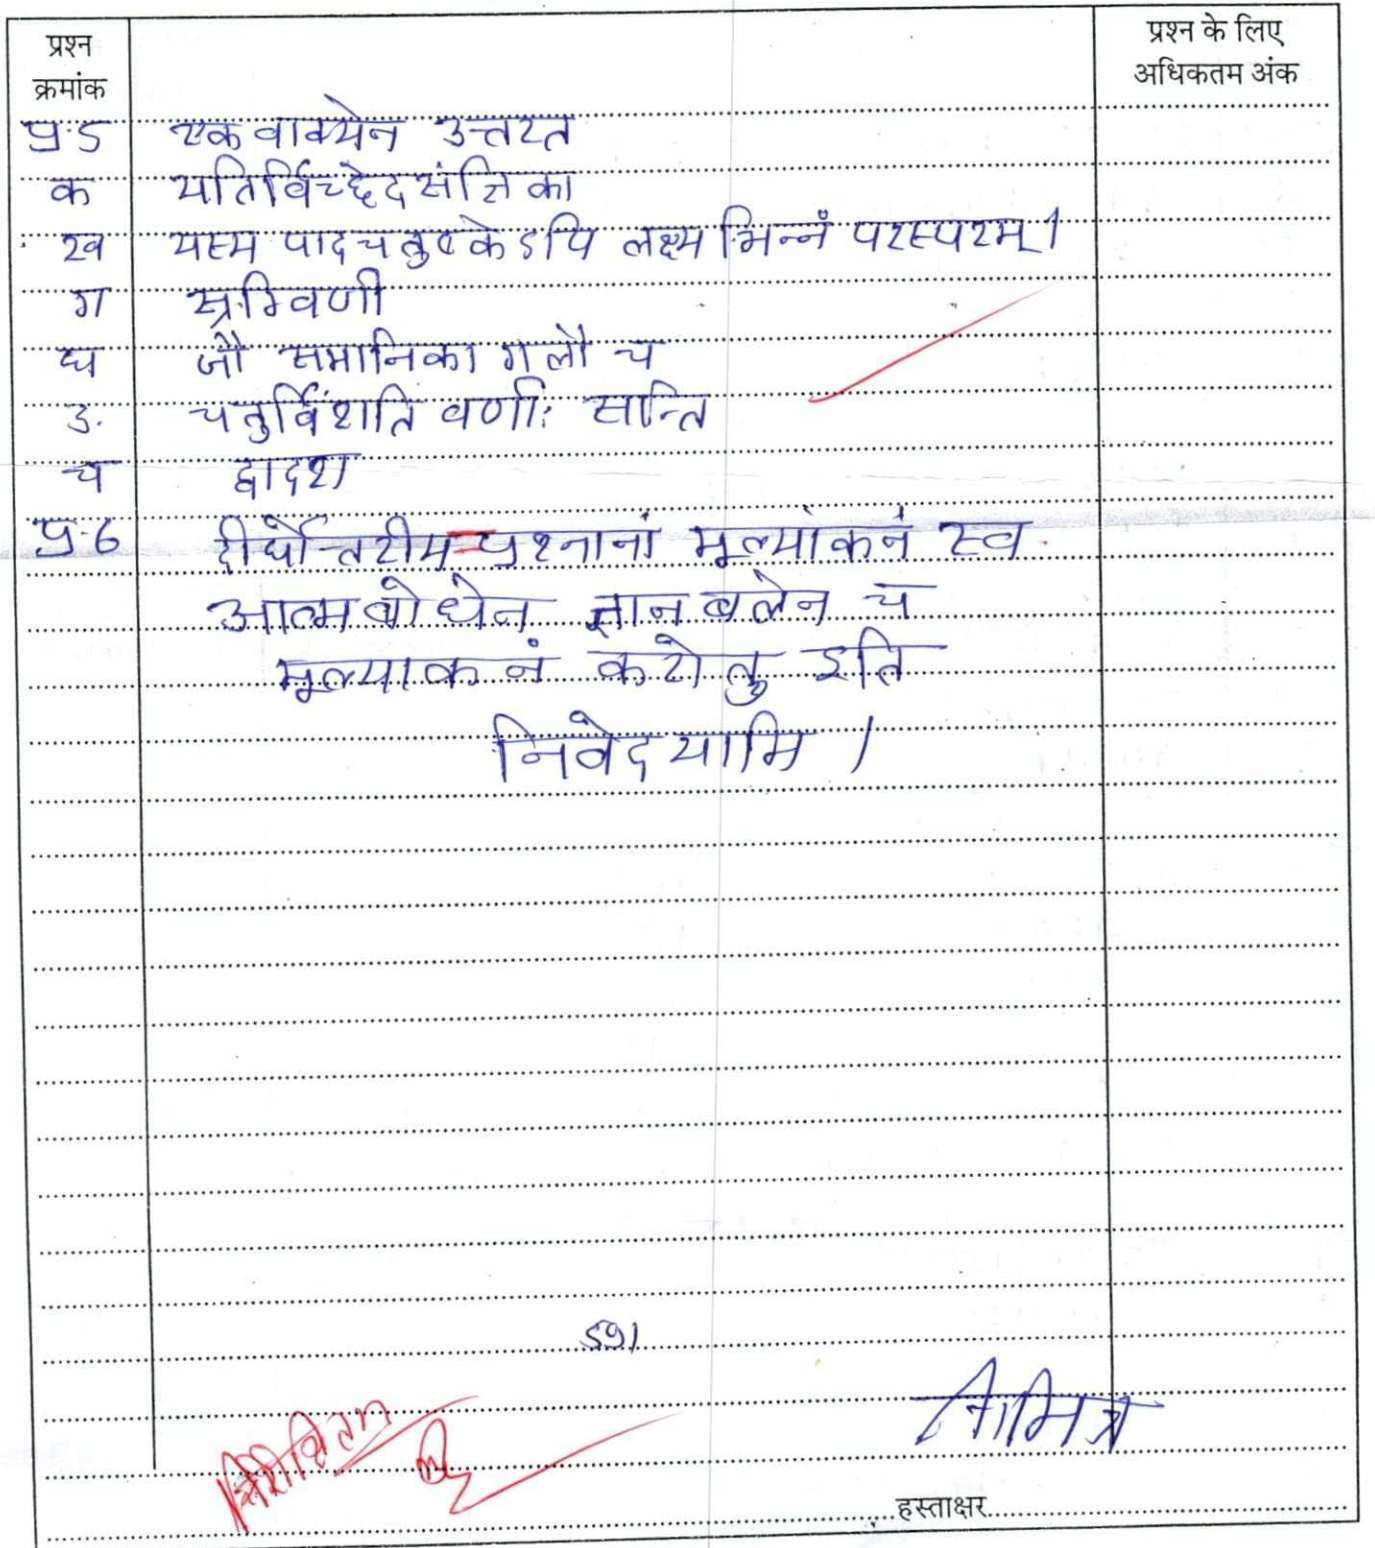 प्रश्न
क्रमांक
प्रश्न के लिए
अधिकतम अंक
प्र.5 एकवाक्येन उत्तरत
क यतिर्विच्छेदसंज्ञिका
ख यस्य पादचतुष्केऽपि लक्ष्म भिन्नं परस्परम्।
ग स्रग्विणी
घ र्जौ समानिका गलौ च
ड. चतुर्विंशति वर्णाः सन्ति
च द्वादश
प्र.6 दीर्घोत्तरीय प्रश्नानां मूल्यांकनं स्व
आत्मबोधेन ज्ञानबलेन च
मूल्याकनं करोतु इति
निवेदयामि।
हस्ताक्षर